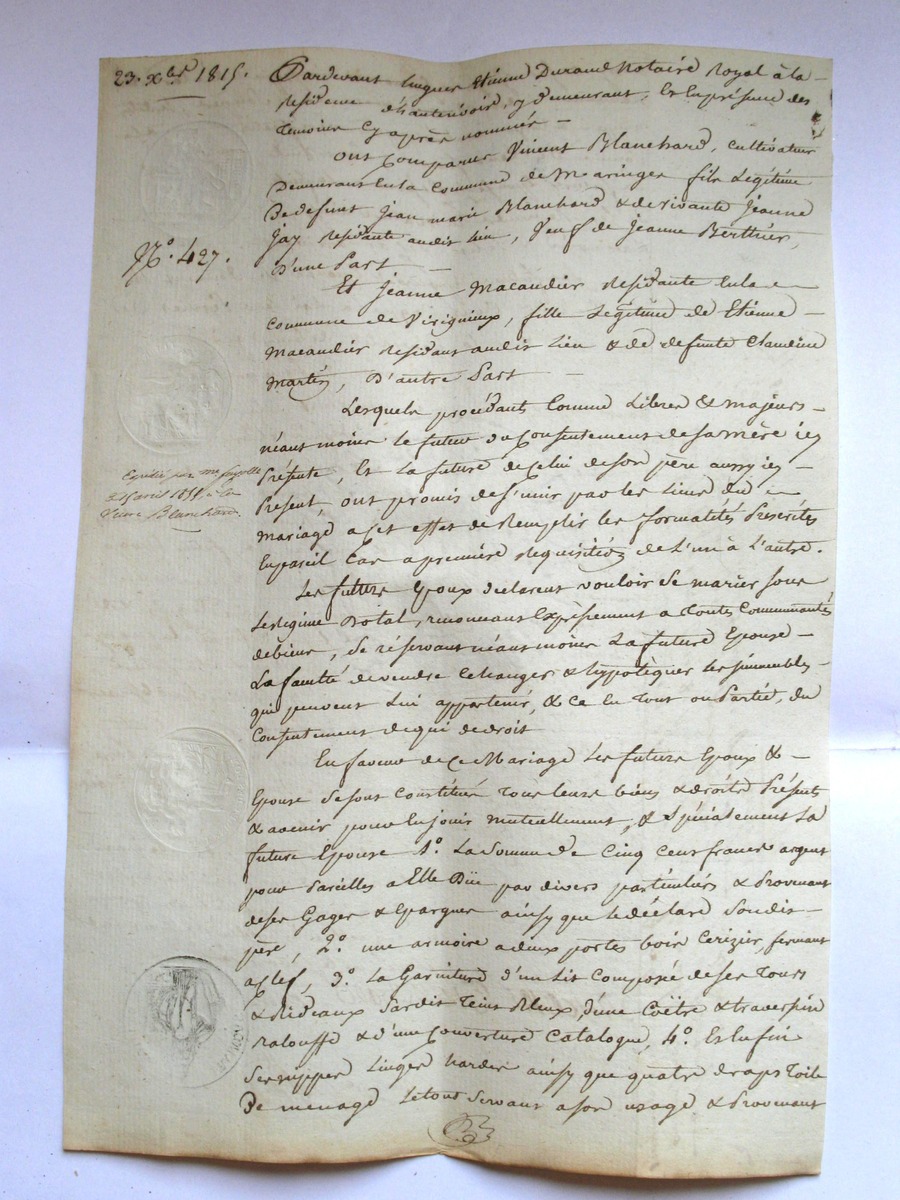 23. xbre 1815.
Pardevant Hugues Etienne Durand Notaire Royal à la
residence d'hautenvoir, y demeurant, Et En présence des
Temoins Cy après nommés —
ont Comparus Vincent Blanchard, cultivateur
Demeurant En la Commune de Maringes fils Légitime
De defunt Jean marie Blanchard & de vivante Jeanne
Jay residante audit lieu, Veuf de Jeanne Berthier,
D'une Part —
N.º 427.
Et Jeanne Macaudier residante En la
Commune de Virigneux, fille Légitime de Etienne
Macaudier residant audit Lieu & de defunte Claudine
Martin, D'autre Part —
Lesquels procédants Comme Libres & majeurs
néantmoins le futur du Consentement de sa mère icy
Présente, Et La future de Celui de son père aussy icy
Présent, ont promis de s'unir par les Liens du
mariage a Cet effet de Remplir les formalités Prescrites
En pareil Cas a première requisition de L'un à L'autre.
Expédié par me
avril à la
Veuve Blanchard.
Les futurs Epoux declarent vouloir Se marier sous
Le régime Dotal, renonçant Expressement a Toutes Communautés
de biens, Se réservant néantmoins La future Epouse
La faculté de vendre Echanger & hypotèquer les immeubles
qui peuvent Lui appartenir, & Ce En Tout ou Partie, du
Consentement de qui de droit
En faveur de Ce Mariage Les futurs Epoux &
Epouse Se sont Constitués Tous Leurs biens & droits Présents
& avenir pour En jouir mutuellement, & Spécialement La
future Epouse 1.º La Somme de Cinq Cent francs argent
pour Pareilles a Elle Düe par divers particuliers & Provenant
de ses Gages & Epargnes ainsy que le déclare Son dit
père, 2.º une armoire a deux portes bois Cerizier, fermant
a Clef, 3.º La Garniture d'un Lit Composée de ses Tours
& Rideaux Sardis Teint Bleux, d'une Coëtre & traversier
& d'une Couverture Catalogne, 4.º Et Enfin
Ses nippes Linges hardes ainsy que quatre draps Toile
De menage Le tout Servant a Son usage & Provenant